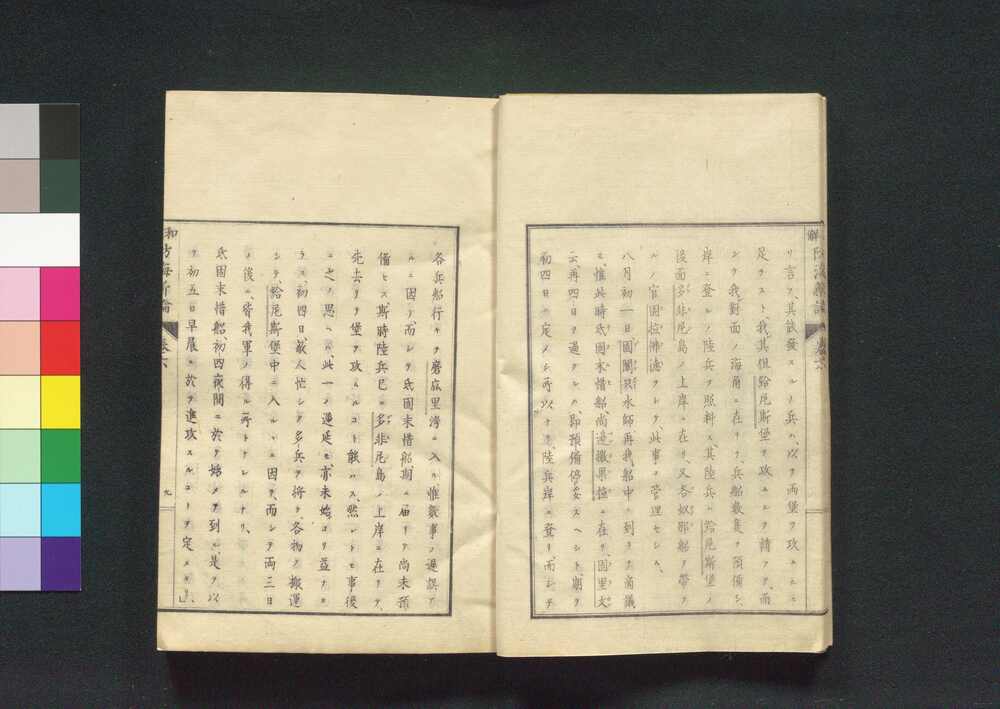 リ言フ、其試發スルノ兵ハ、以テ両堡ヲ攻ムルニ
足ラストト、我其俱給厄斯堡ヲ攻ムルヲ請フヲ、而
シテ我對面ノ海角ニ在リテ、兵船數隻ヲ預備シ、
岸ニ登レノ陸兵ヲ照料ス、其陸兵ハ給厄斯堡ノ
後面多非尼島ノ上岸ニ在リ、又各奴邪船ヲ帶
ルノ官固拉沸德ヲシテ、此事ヲ管理セシム、
八月初一日國關隊水師、再我船中ニ到リテ商議
ス、惟此時氐固末惜船尚邉撒果拉ニ在リ、固里文
云、再四日ヲ過クレハ、即預備停妥スヘシト、期ヲ
初四日ニ定メシ所以ナリ、陸兵岸ニ登リ、而シテ
各兵船行キテ磨底里湾ニ入ル、惟數事ノ遲誤ア
ルニ因テ、而シテ氐固末惜船期ニ届リテ尚未預
備セス、斯時陸兵已ニ多非尼島ノ上岸ニ在リテ、
先去リテ堡ヲ攻ムルコト能ハス、然レトモ事後
ニ之ヲ思ヘハ、此一ノ遲延モ亦未始ヨリ益ナカ
ラス、初四日、敵人忙シテ多兵ヲ将テ、各物ヲ搬運
シテ、給厄斯堡中ニ入ルヽニ因テ、而シテ両三日
ノ後ニ、皆我軍ノ得ル所トナレルナリ、
氐固末惜船、初四夜間ニ於テ始メテ到ル、是ヲ以
テ初五日早晨ニ於テ進攻スルコトヲ定メタリ、
和
防海新論
卷六
九